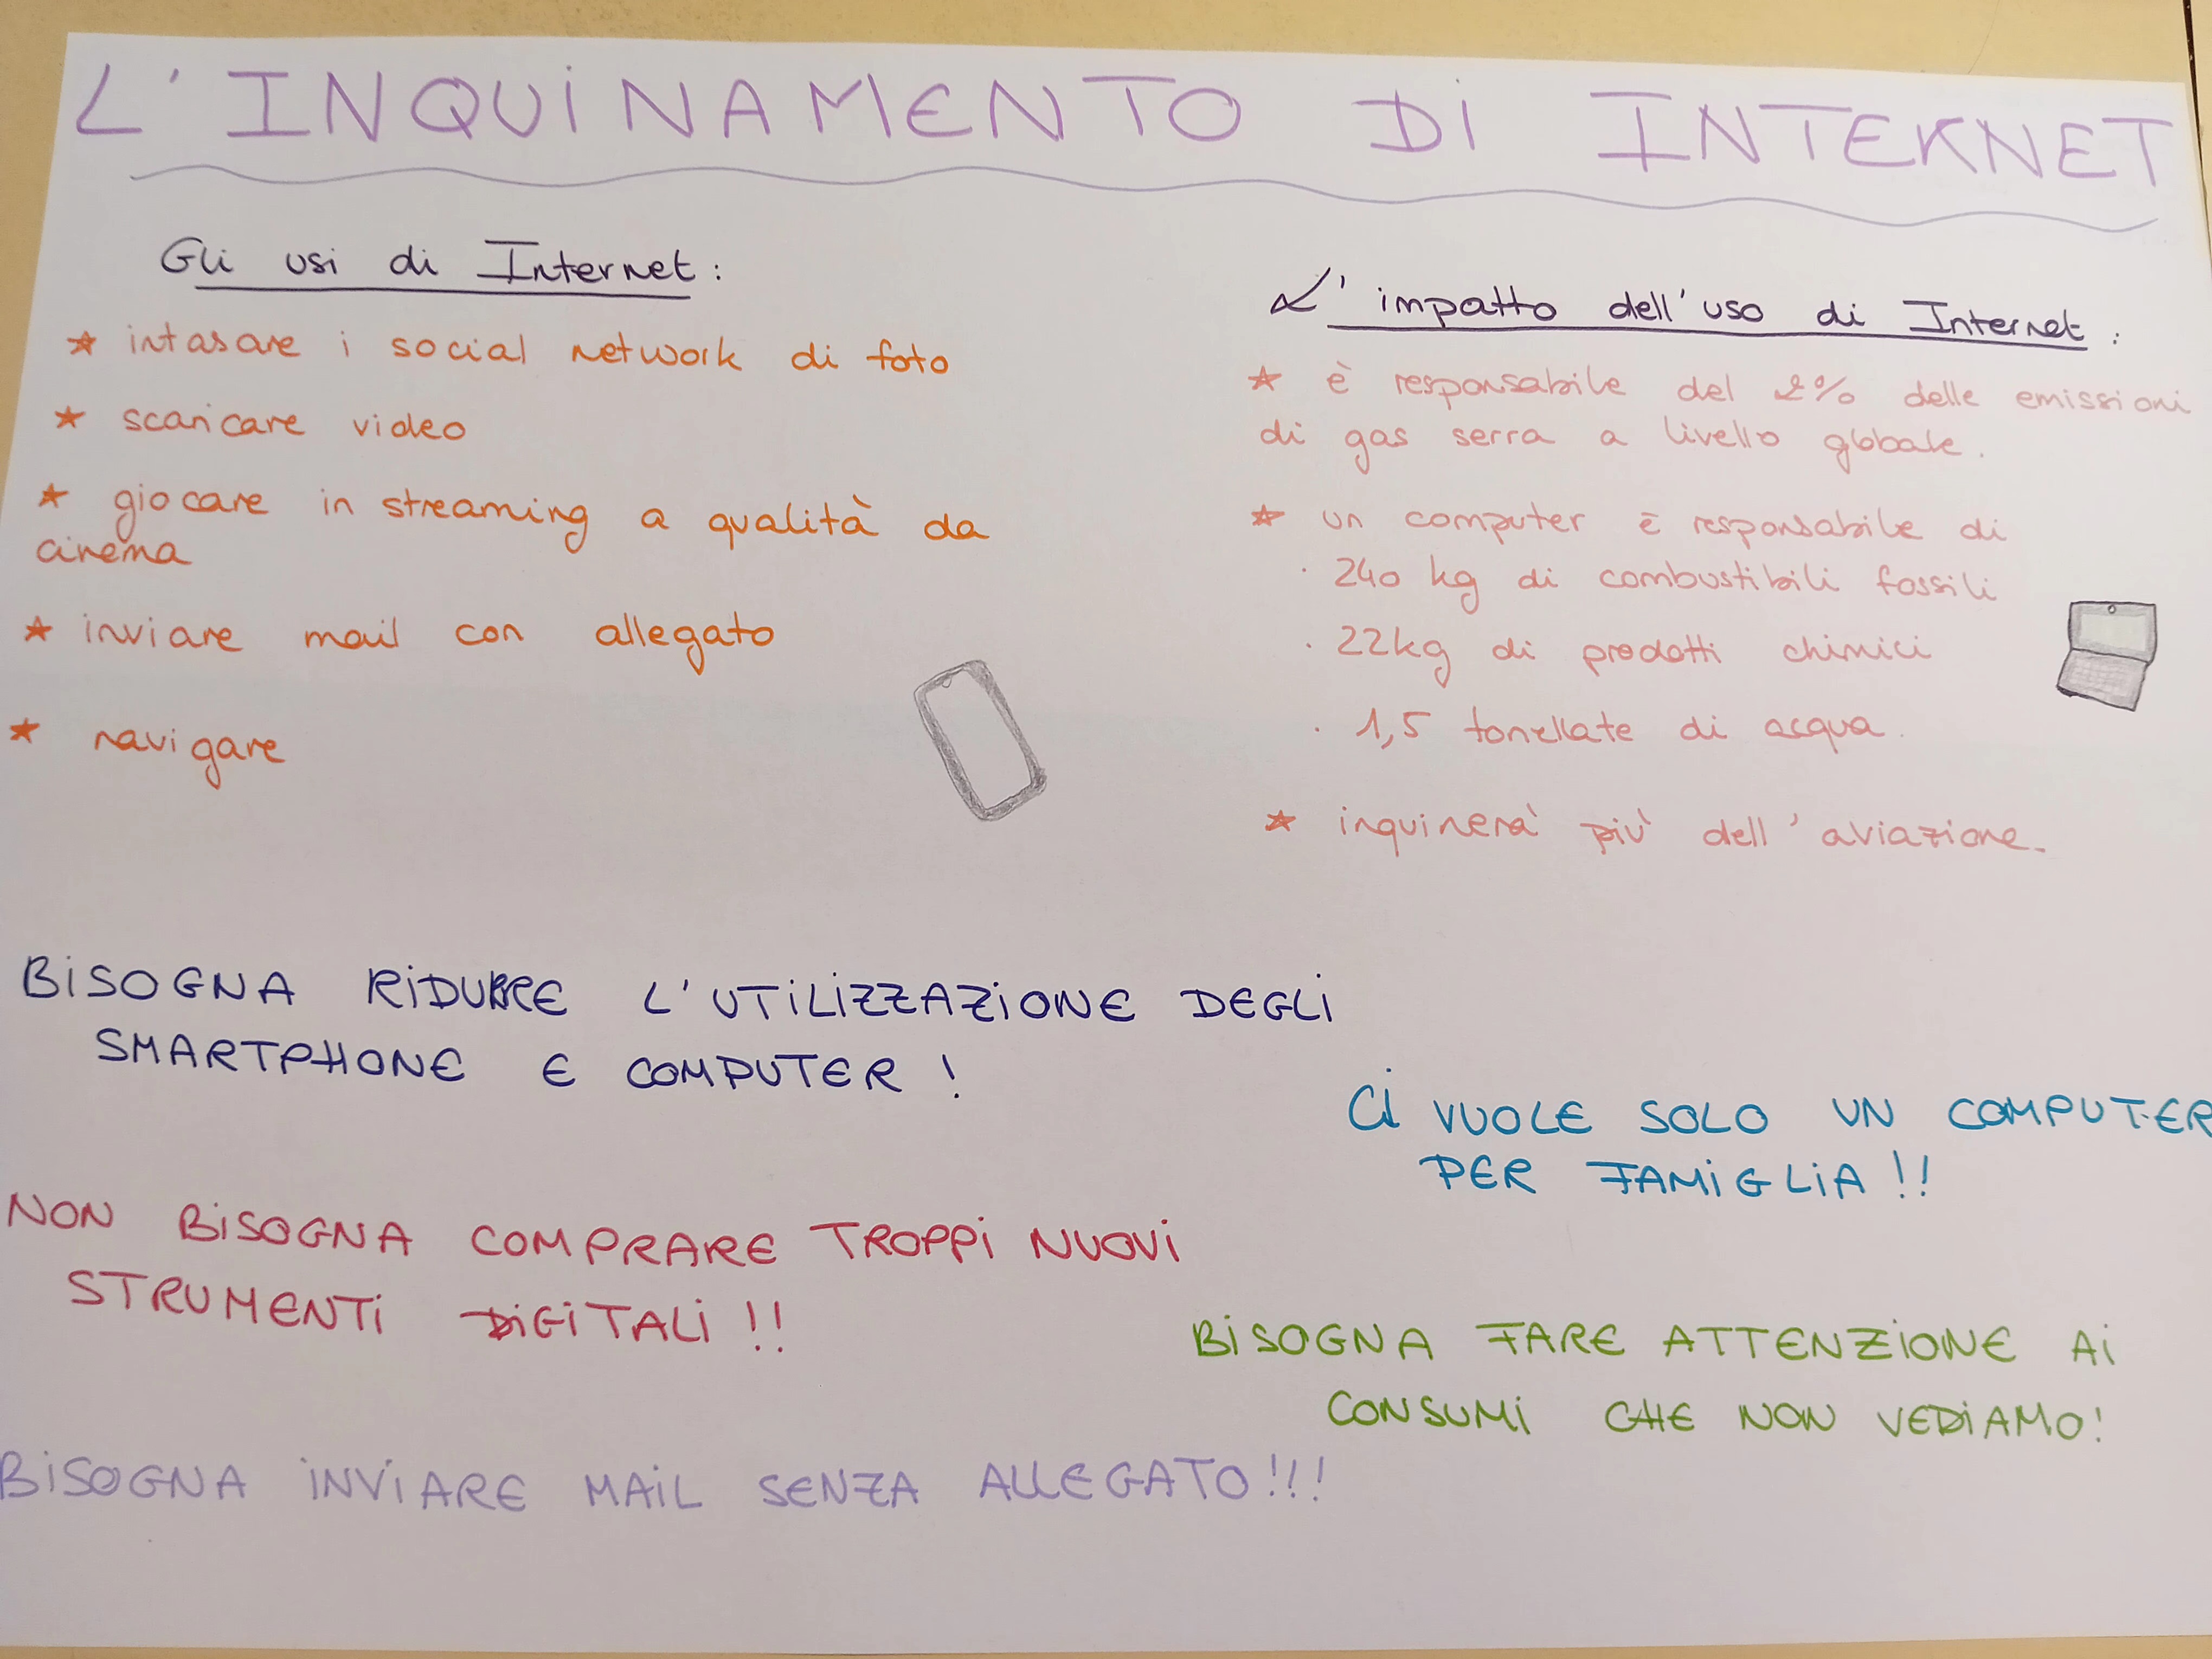 L'INQUINAMENTO DI INTERNET
Gli usi di Internet :
★ intasare i social network di foto
★ scaricare video
★ giocare in streaming a qualità da
cinema
★ inviare mail con allegato
★ navigare
L' impatto dell'uso di Internet :
★ è responsabile del 2% delle emissioni
di gas serra a livello globale.
★ un computer è responsabile di
· 240 kg di combustibili fossili
· 22kg di prodotti chimici
· 1,5 tonellate di acqua.
★ inquinerà più dell'aviazione.
BISOGNA RIDURRE L'UTILIZZAZIONE DEGLI
SMARTPHONE E COMPUTER !
CI VUOLE SOLO UN COMPUTER
PER FAMIGLIA !!
NON BISOGNA COMPRARE TROPPI NUOVI
STRUMENTI DIGITALI !!
BISOGNA FARE ATTENZIONE AI
CONSUMI CHE NON VEDIAMO!
BISOGNA INVIARE MAIL SENZA ALLEGATO!!!